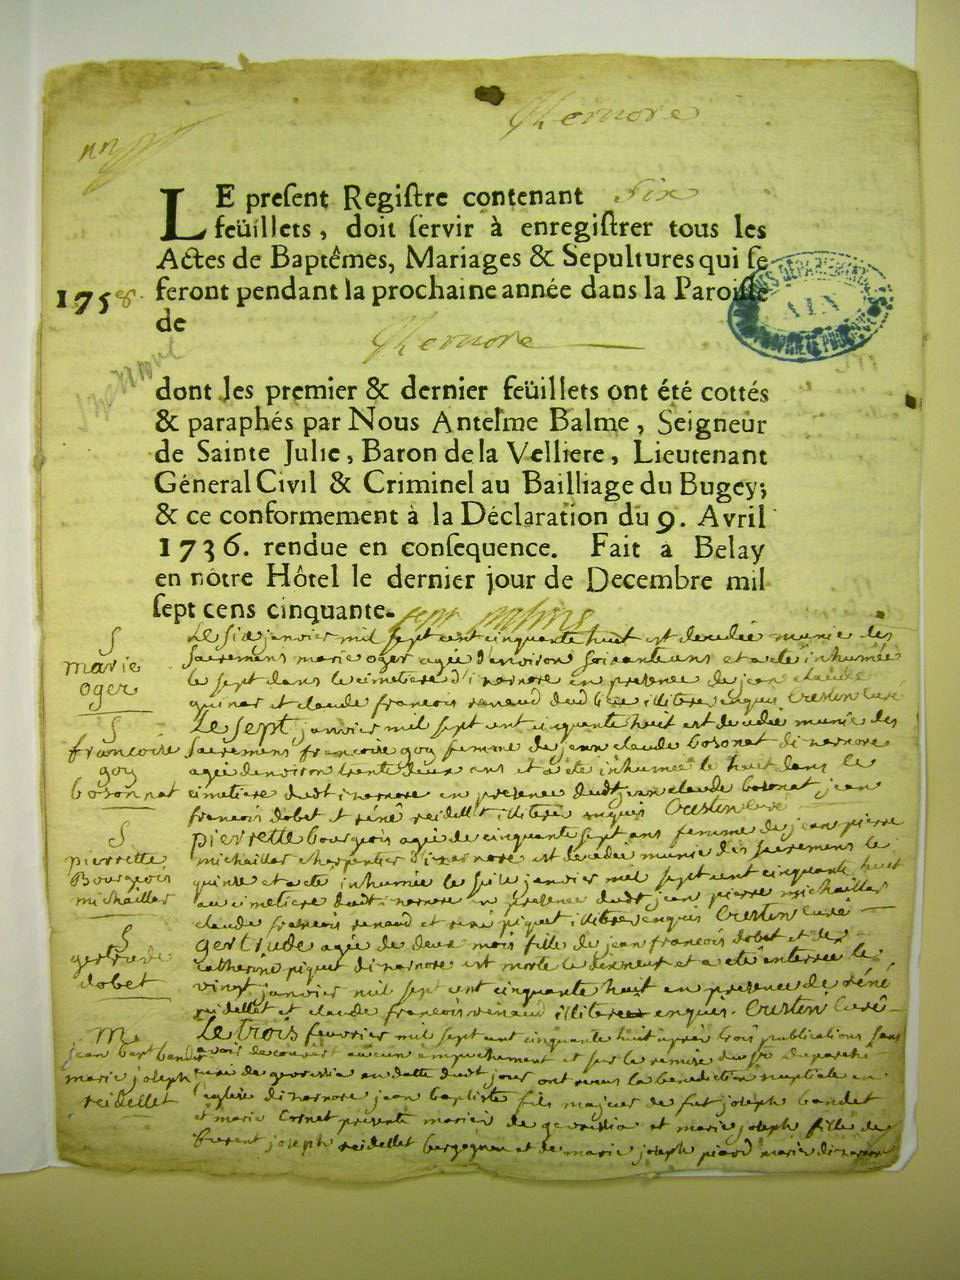 Izernore
LE present Registre contenant Six
feüillets, doit servir à enregistrer tous les
Actes de Baptêmes, Mariages & Sepultures qui se
1758. feront pendant la prochaine année dans la Paroisse
de
Izernore
Izernore
dont les premier & dernier feüillets ont été cottés
& paraphés par Nous Antelme Balme, Seigneur
de Sainte Julie, Baron de la Velliere, Lieutenant
Géneral Civil & Criminel au Bailliage du Bugey;
& ce conformement à la Déclaration du 9. Avril
1736. rendue en consequence. Fait a Belay
en nôtre Hôtel le dernier jour de Decembre mil
sept cens cinquante. sept
AIX
S
marie
oger
Le six janvier mil sept cent cinquante huit est decedée munie des
sacremens marie oger agée d'environ soixante ans et a eté inhumée
le sept dans le cimetiere d'izarnore en presence de jean claude
et claude françois renaud dud lieu illitérés enquis Crestin curé
S
francoise
goy
bosonnat
Le sept janvier mil sept cent cinquante huit est decedée munie des
sacremens francoise goy femme de jean claude bosonat dizarnore
agée denviron trente deux ans et a eté inhumée le huit dans le
cimetiere dudt izarnore en presence dudt jean claude bosonat jean
francois dobet et réné reidellet illiteré enquis Crestin curé
S
pierrette
Bourgeois
michaillar
pierrette bourgeois agée de cinquante sept ans femme de jean pierre
michaillar charpentier dizarnore est decedée munie des sacremens le
quinze et a eté inhumée le seize janvier mil sept cent cinquante huit
au cimetiere dudt izarnore en presence dudt jean pierre michaillar
claude francois renaud et réné piquet illitéré enquis Crestin curé
S
gertrude
dobet
gertrude agée de deux mois fille de jean francois dobet et de
catherine piquet dizarnore est morte le dixneuf et a eté enterrée le
vingt janvier mil sept cent cinquante huit en presence de réné
reidellet et claude francois renaud illiteré enquis. Crestin curé
M
jean bapt bandet
marie joseph
reidellet
Le trois fevrier mil sept cent cinquante huit apres trois publications sans
avoir decouvert aucun empechement et sur la remise du sr
curé de geovissia en datte dudt jour ont receu la benediction nuptiale en
l'eglise dizarnore jean baptiste fils majeur de fut joseph bandet
et marie Cornet presente mariés de geovissia et marie joseph fille de
joseph reidellet et de marie joseph picard mariés dizarnore